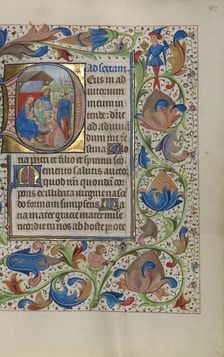 ad sextam
Eus in ad
iutorium
meum in
tende : d̄ne
ad adiuuā
dum me fes
tina
Gloria
na patri et filio et spiritui
Memento salutis auctor
quod nr̄i quondā cor
poris ex illibata virgine nascē
do formam sumpseris Ma
ria mater gracie mater mise
ricordie tu nos ab hoste prote